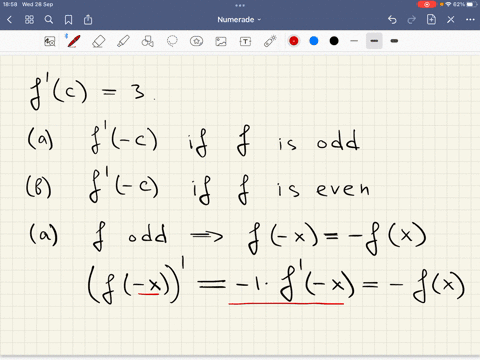 18:58 Wed 28 Sep
62%
Numerade
f'(c) = 3.
(a) f'(-c) if f is odd
(b) f'(-c) if f is even
(a) f odd ⟹ f(-x) = -f(x)
(f(-x))' = -1· f'(-x) = - f(x)